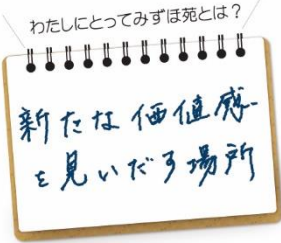 わたしにとってみずほ苑とは？
新たな価値感
を見いだす場所